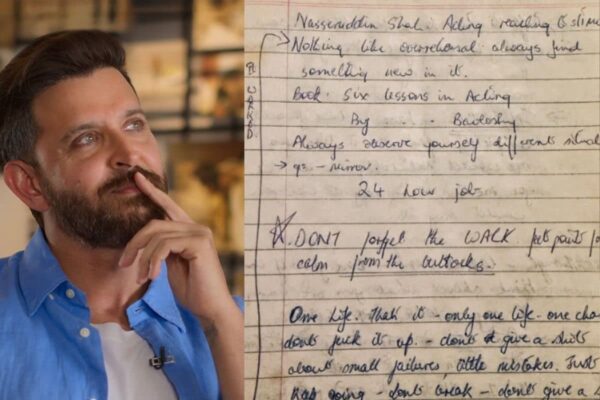 Nasseruddin Shah. Acting reaching to stimu
→ Nothing like overrehearsal always find
something new in it.
Book. Six lessons in Acting
By . . .
Always observe yourself different situat
→ mirror.
24 hour job
DONT forget the WALK
calm from the buttocks.
One life. That's it - only one life - one cha
dont fuck it up. - dont give a shits
about small failures, little mistakes. Just
keep going - dont break - dont give a